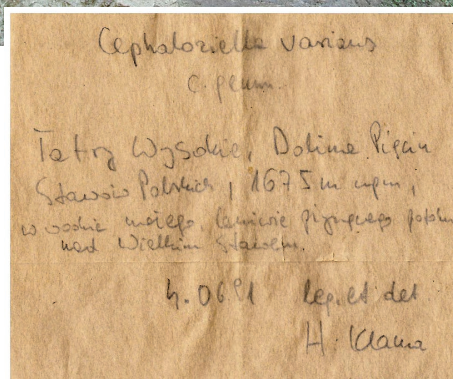 Cephaloziella varians
c. gemm.
Tatry Wysokie, Dolina Pięciu
Stawów Polskich, 1675 m npm,
w wodzie małego, leniwie płynącego potoku
nad Wielkim Stawem.
4.0691 leg. et det
H. Klama